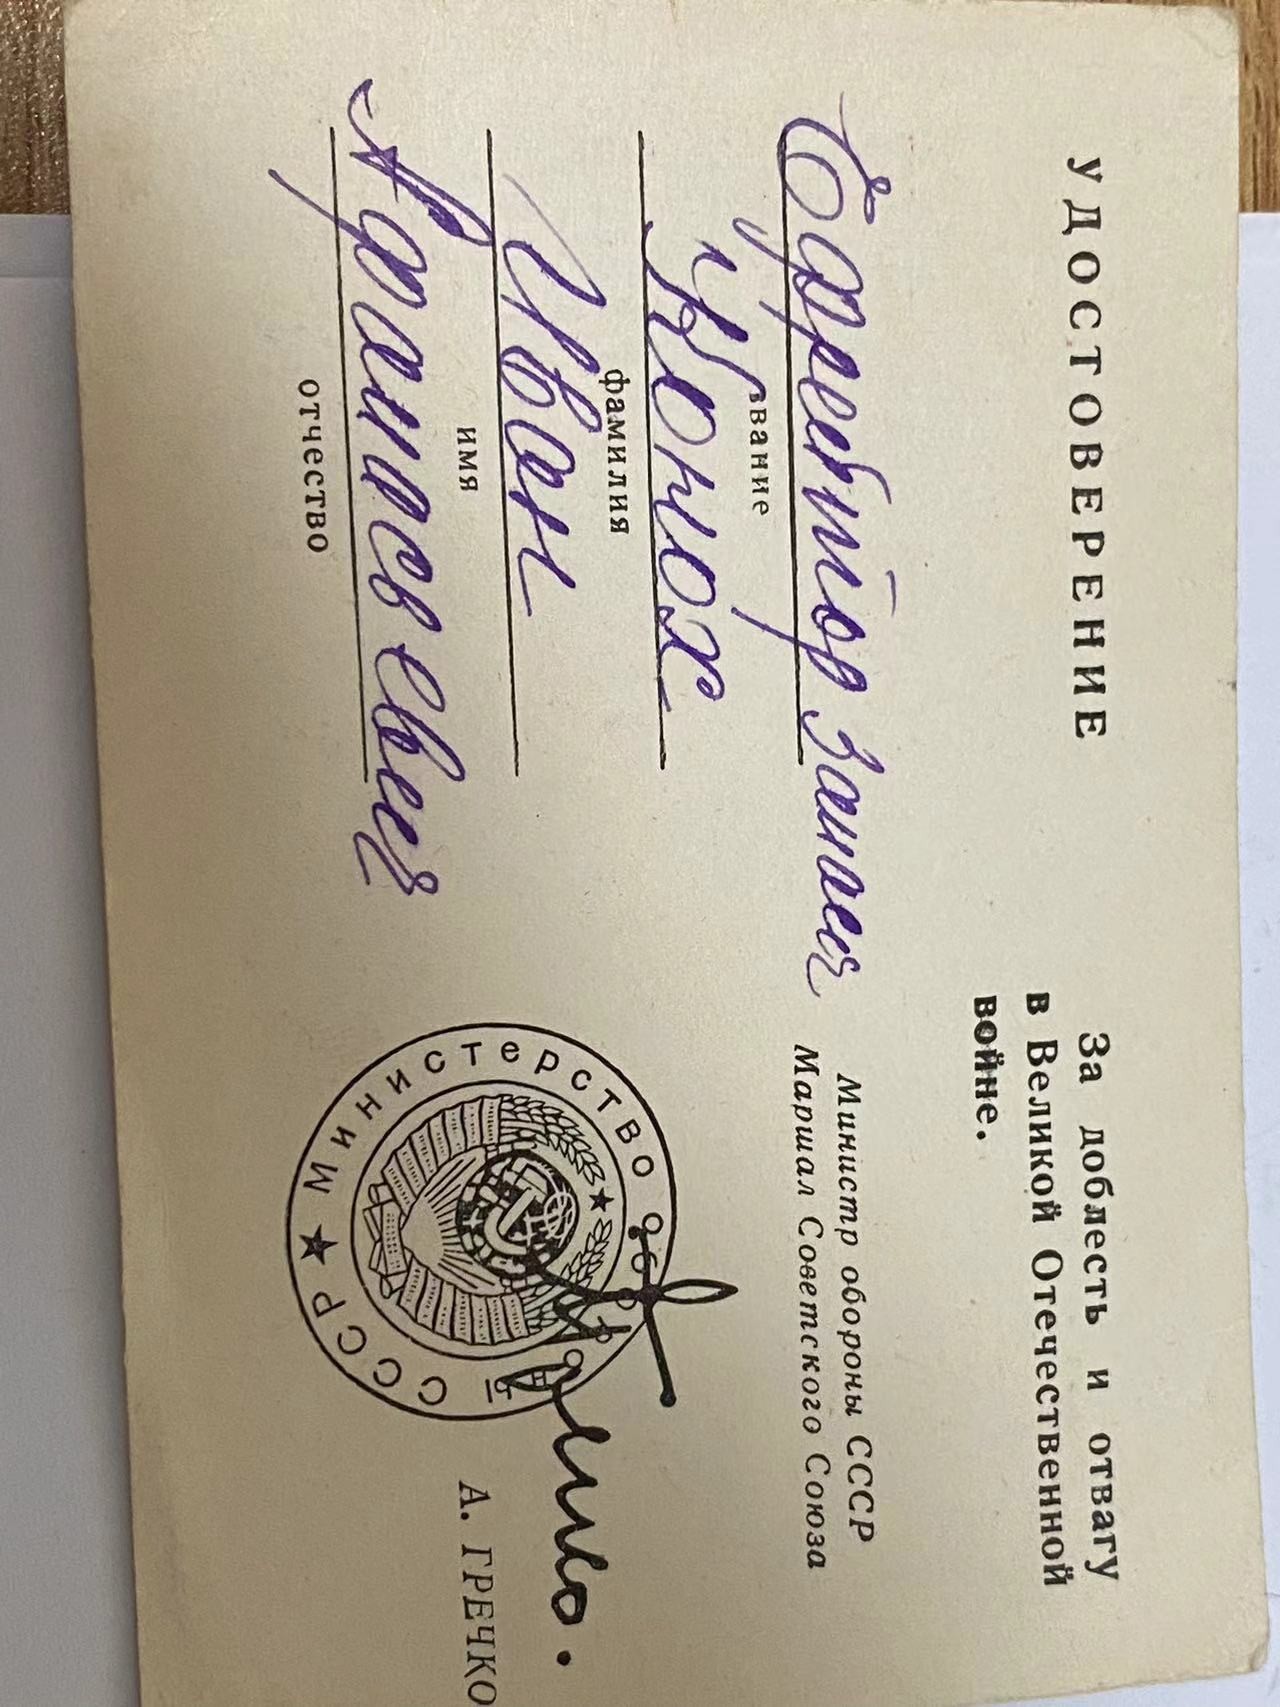 УДОСТОВЕРЕНИЕ
Ефрейтор запаса
звание
фамилия
Иван
имя
Афанасьевич
отчество
За доблесть и отвагу
в Великой Отечественной
войне.
Министр обороны СССР
Маршал Советского Союза
Министерство обороны СССР
А. ГРЕЧКО